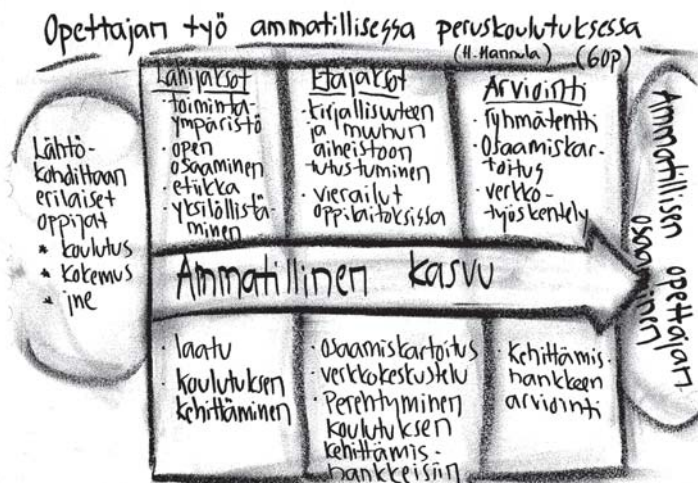 Opettajan työ ammatillisessa peruskoulutuksessa
(H. Hannula) (60p)
Lähtö-
kohdiltaan
erilaiset
oppijat
* koulutus
* kokemus
* jne
Lähijaksot
· toiminta-
ympäristö
· open
osaaminen
· etiikka
· yksilöllistä-
minen
Etäjaksot
· kirjallisuuteen
ja muuhun
aiheistoon
tutustuminen
· vierailut
oppilaitoksissa
Arviointi
· ryhmätentti
· Osaamiskar-
toitus
· verkko-
työskentely
Ammatillinen kasvu
· laatu
· koulutuksen
kehittäminen
· osaamiskartoitus
· verkkokeskustelu
· Perehtyminen
koulutuksen
kehittämis-
hankkeisiin
· kehittämis-
hankkeen
arviointi
Ammatillisen opettajan
osaaminen